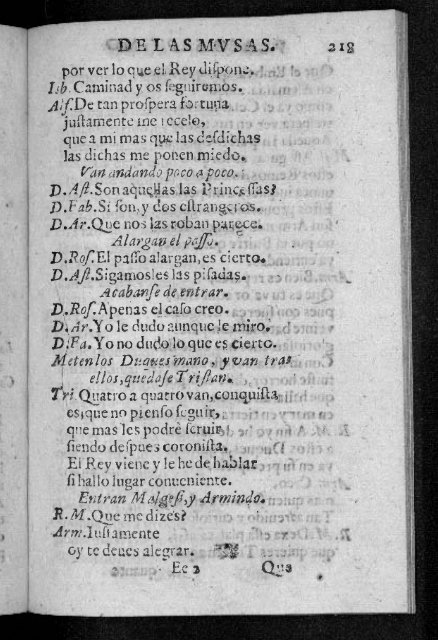 DE LAS MVSAS. 218
por ver lo que el Rey dispone.
Isb. Caminad y os seguiremos.
Aif. De tan prospera fortuna
justamente me recelo,
que a mi mas que las desdichas
las dichas me ponen miedo.
Van andando poco a poco.
D. Ast. Son aquellas las Princessas?
D. Fab. Si son, y dos estrangeros.
D. Ar. Que nos las roban parece.
Alargan el passo.
D. Ros. El passo alargan, es cierto.
D. Ast. Sigamosles las pisadas.
Acabanse de entrar.
D. Ros. Apenas el caso creo.
D. Ar. Yo le dudo aunque le miro.
D. Fa. Yo no dudo lo que es cierto.
Meten los Duques mano, y van tras
ellos, quedase Tristan.
Tri. Quatro a quatro van, conquista
es, que no pienso seguir,
que mas les podrè seruir,
siendo despues coronista.
El Rey viene y le he de hablar
si hallo lugar conueniente.
Entran Malgesi, y Armindo.
R. M. Que me dizes?
Arm. Iustamente
oy te deues alegrar.
Ee 2 Que